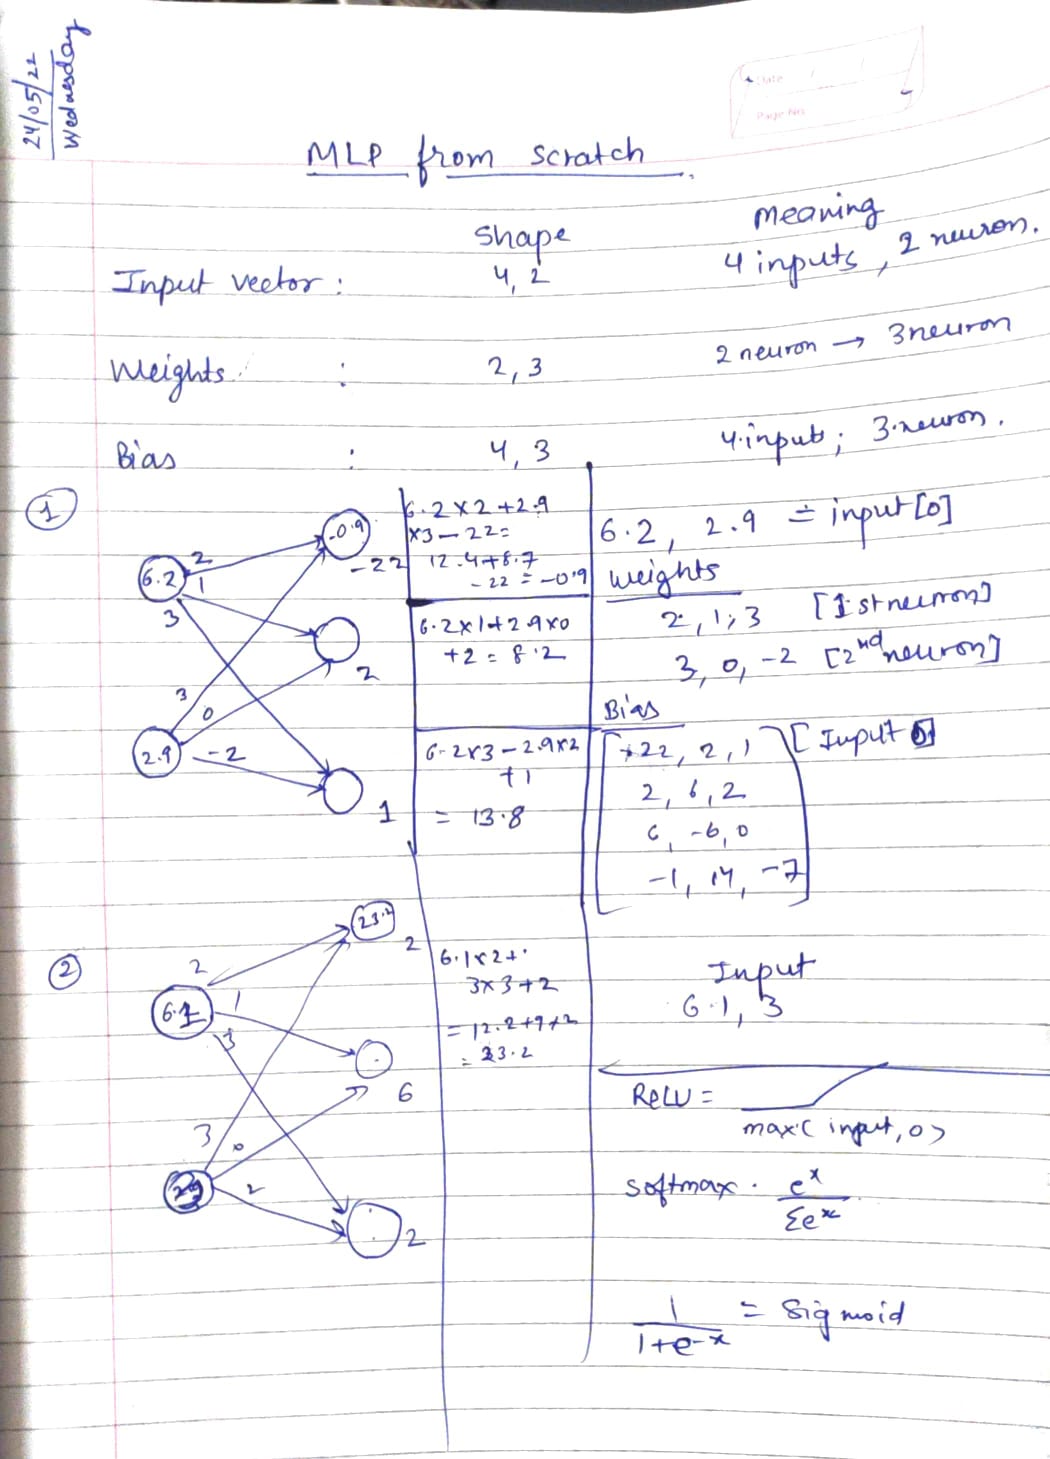 24/05/22
Wednesday
Date
Page No
MLP from scratch
Shape
Meaning
Input vector :
4, 2
4 inputs, 2 neuron.
Weights :
2, 3
2 neuron → 3 neuron
Bias :
4, 3
4 inputs; 3 neuron.
1
6.2
2
1
3
-0.9
-22
2.9
3
0
-2
2
1
6.2 x 2 + 2.9
x3 - 22 =
12.4 + 8.7
- 22 = -0.9
6.2x1+2.9x0
+2 = 8.2
6.2x3 - 2.9x2
+1
= 13.8
6.2, 2.9 = input[0]
Weights
2, 1, 3 [1st neuron]
3, 0, -2 [2nd neuron]
Bias
-22, 2, 1 [Input 0]
2, 6, 2
6, -6, 0
-1, 14, -7
2
6.1
2
1
3
23.2
2
6
3
0
2
2
6.1x2+
3x3+2
= 12.2+9+2
= 23.2
Input
6.1, 3
ReLU =
max( input, 0)
softmax. e^x
Σe^x
1 = Sigmoid
1+e-x